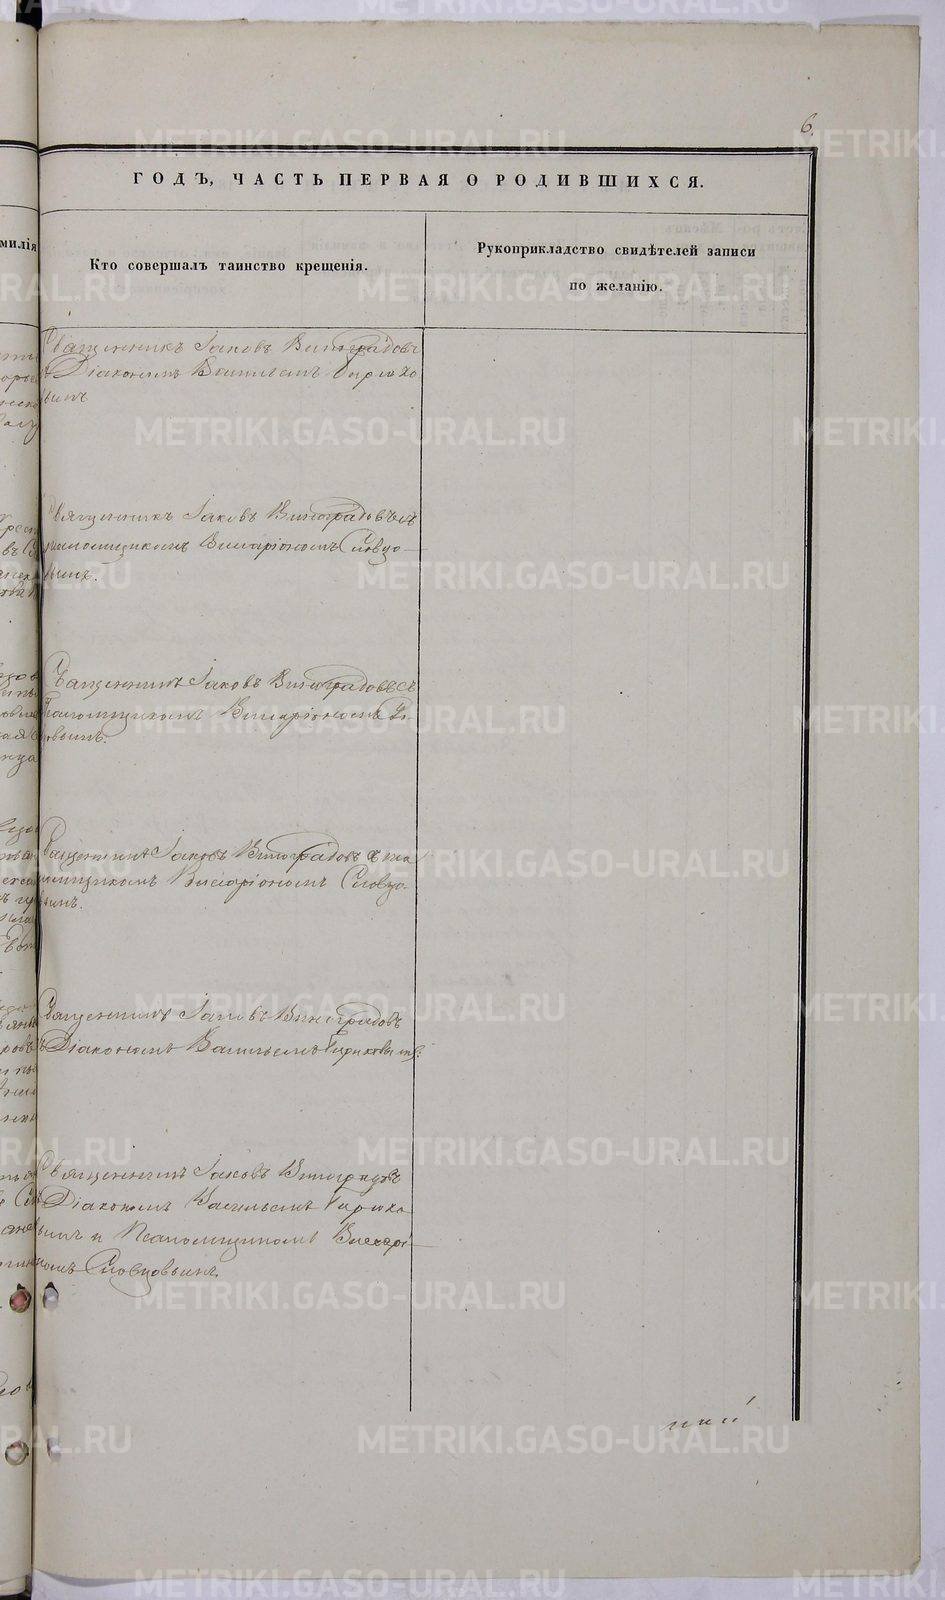 6.
ГОДЪ, ЧАСТЬ ПЕРВАЯ О РОДИВШИХСЯ.
милія
Кто совершалъ таинство крещенія.
Рукоприкладство свидѣтелей записи
по желанію.
Священникъ Іаковъ Виноградовъ
съ Діакономъ Васильемъ Гирихо
вымъ
Священникъ Іаковъ Виноградовъ съ
псаломщикомъ Висаріономъ Словцо-
вымъ.
Священникъ Іаковъ Виноградовъ съ
Псаломщикомъ Висаріономъ
Священникъ Іаковъ Виноградовъ съ пса
ломщикомъ Висаріономъ Словцо-
вымъ.
Священникъ Іаковъ Виноградовъ
съ Діакономъ Васильемъ Гириховымъ.
Священникъ Іаковъ Виноградовъ
съ Діакономъ Васильемъ Гирихо
вымъ и Псаломщикомъ Висарі-
ономъ Словцовымъ.
METRIKI.GASO-URAL.RU